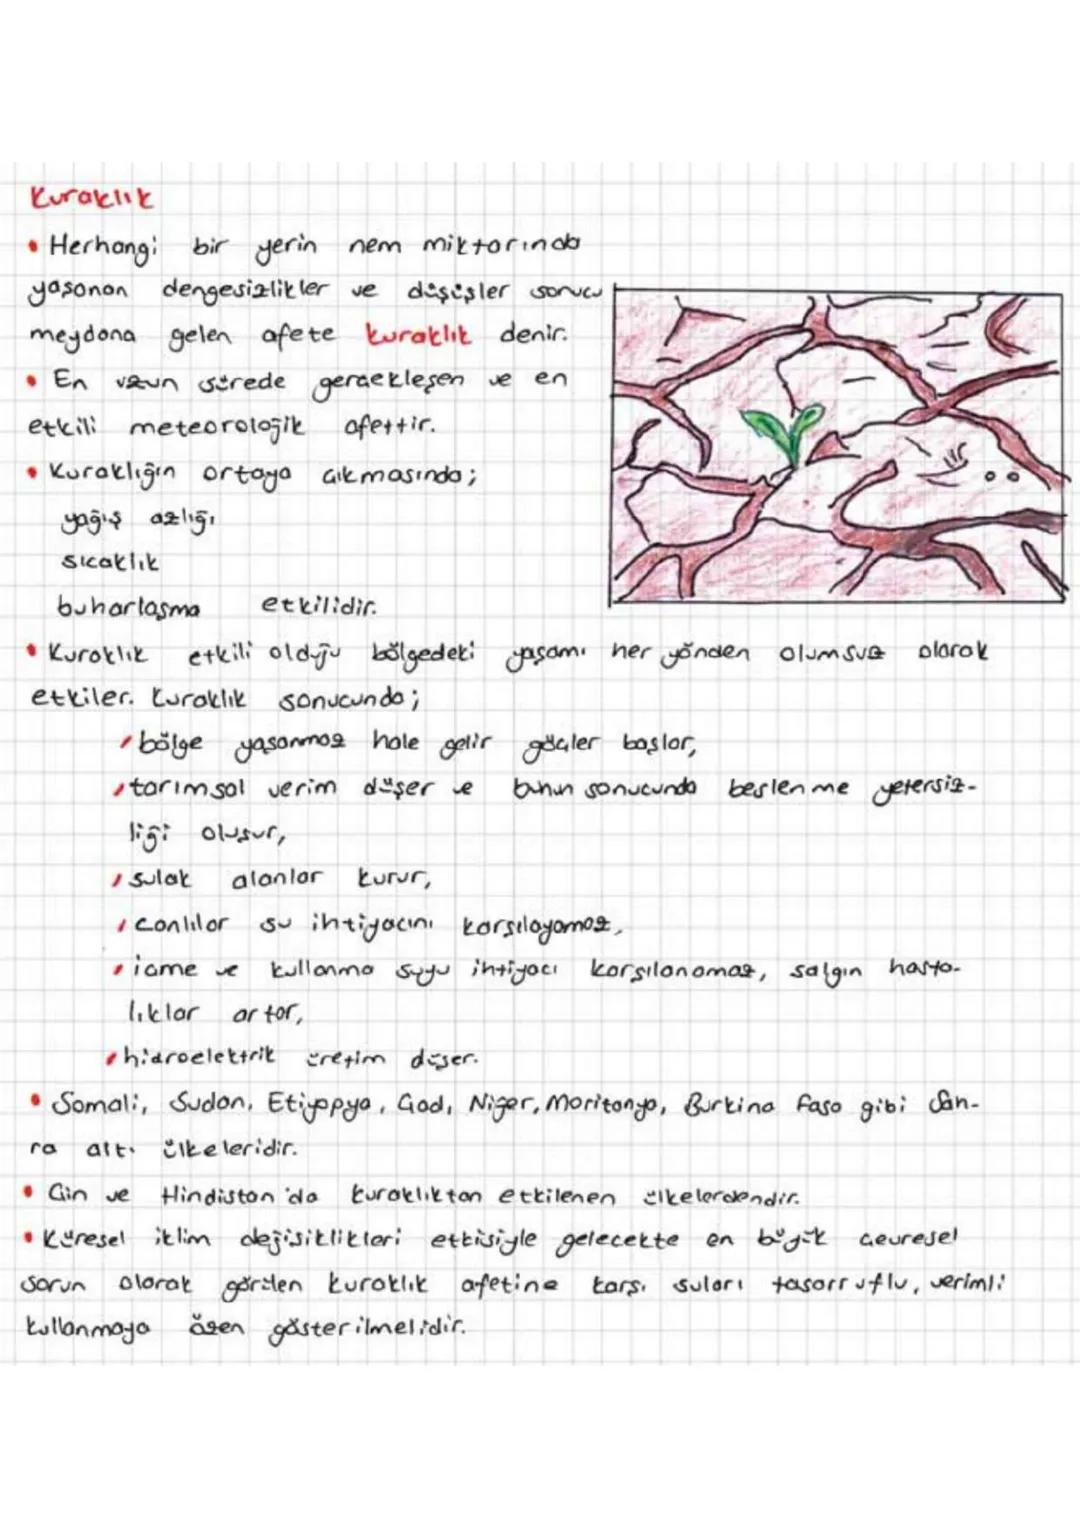 Kuraklık
• Herhangi bir yerin nem miktarında
yaşanan dengesizlikler ve düşüşler sonucu
meydana gelen afete kuraklık denir.
• En uzun sürede gerçekleşen ve en
etkili meteorolojik afettir.
• Kuraklığın ortaya çıkmasında;
yağış azlığı
sıcaklık
buharlaşma etkilidir.
• Kuraklık etkili olduğu bölgedeki yaşamı her yönden olumsuz olarak
etkiler. Kuraklık sonucunda;
bölge yaşanmaz hale gelir göçler başlar,
tarımsal verim düşer ve bunun sonucunda beslenme yetersiz-
liği oluşur,
sulak alanlar kurur,
canlılar su ihtiyacını karşılayamaz,
içme ve kullanma suyu ihtiyacı karşılanamaz, salgın hasta-
lıklar artar,
hidroelektrik üretim düşer.
• Somali, Sudan, Etiyopya, Çad, Nijer, Moritanya, Burkina Faso gibi Sah-
ra altı ülkeleridir.
• Çin ve Hindistan'da kuraklıktan etkilenen ülkelerdendir.
• Küresel iklim değişiklikleri etkisiyle gelecekte en büyük çevresel
sorun olarak görülen kuraklık afetine karşı suları tasarruflu, verimli
kullanmaya özen gösterilmelidir.